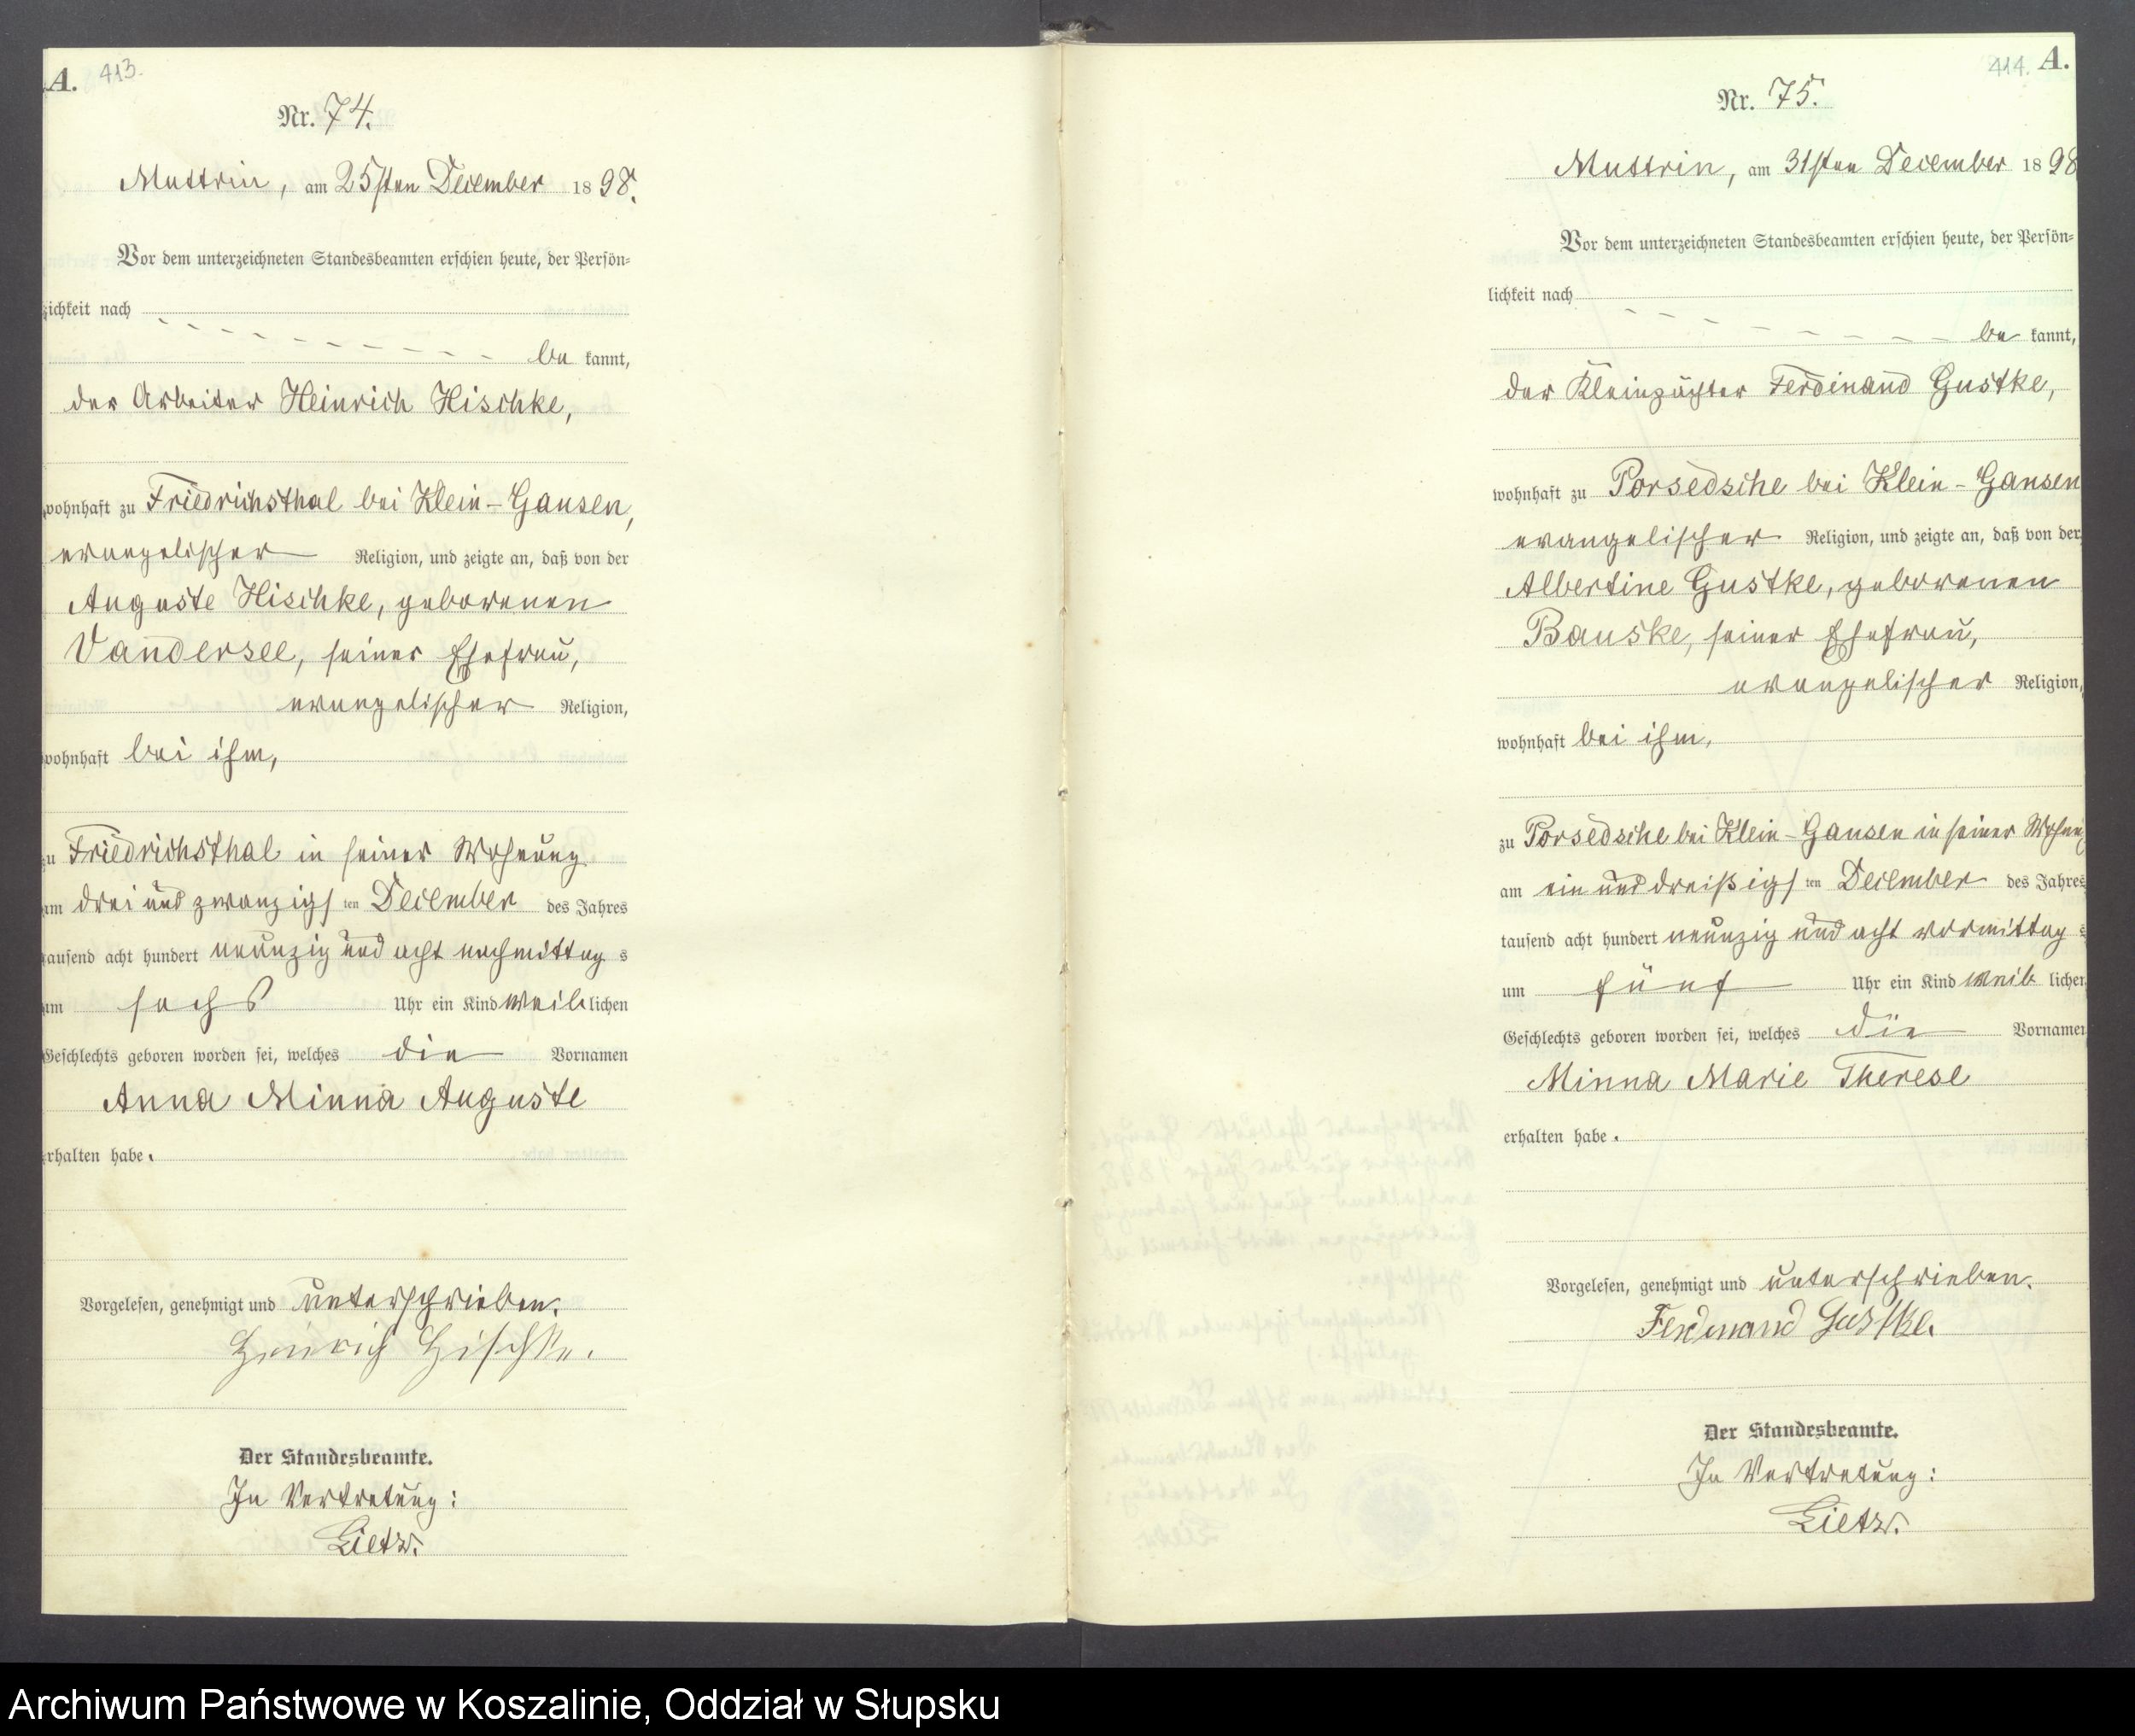 A. 413.
Nr. 74.
Muttrin, am 25sten December 1898.
Vor dem unterzeichneten Standesbeamten erschien heute, der Persön-
lichkeit nach
be kannt,
der Arbeiter Heinrich Hischke,
wohnhaft zu Friedrichsthal bei Klein-Gansen,
evangelischer Religion, und zeigte an, daß von der
Auguste Hischke, geborenen
Vandersee, seiner Ehefrau,
evangelischer Religion,
wohnhaft bei ihm,
zu Friedrichsthal in seiner Wohnung
am drei und zwanzigs ten December des Jahres
tausend acht hundert neunzig und acht nachmittag s
um sechs Uhr ein Kind weib lichen
Geschlechts geboren worden sei, welches die Vornamen
Anna Minna Auguste
erhalten habe.
Vorgelesen, genehmigt und unterschrieben.
Heinrich Hischke.
Der Standesbeamte.
In Vertretung:
Lietz.
414. A.
Nr. 75.
Muttrin, am 31sten December 1898
Vor dem unterzeichneten Standesbeamten erschien heute, der Persön-
lichkeit nach
be kannt,
der Kleinpächter Ferdinand Gustke,
wohnhaft zu Porsedsche bei Klein-Gansen
evangelischer Religion, und zeigte an, daß von der
Albertine Gustke, geborenen
Bauske, seiner Ehefrau,
evangelischer Religion,
wohnhaft bei ihm,
zu Porsedsche bei Klein-Gansen in seiner Wohnung
am ein und dreißigs ten December des Jahres
tausend acht hundert neunzig und acht vormittag s
um fünf Uhr ein Kind weib lichen
Geschlechts geboren worden sei, welches die Vornamen
Minna Marie Therese
erhalten habe.
Vorgelesen, genehmigt und unterschrieben.
Ferdinand Gustke.
Der Standesbeamte.
In Vertretung:
Lietz.
Archiwum Państwowe w Koszalinie, Oddział w Słupsku